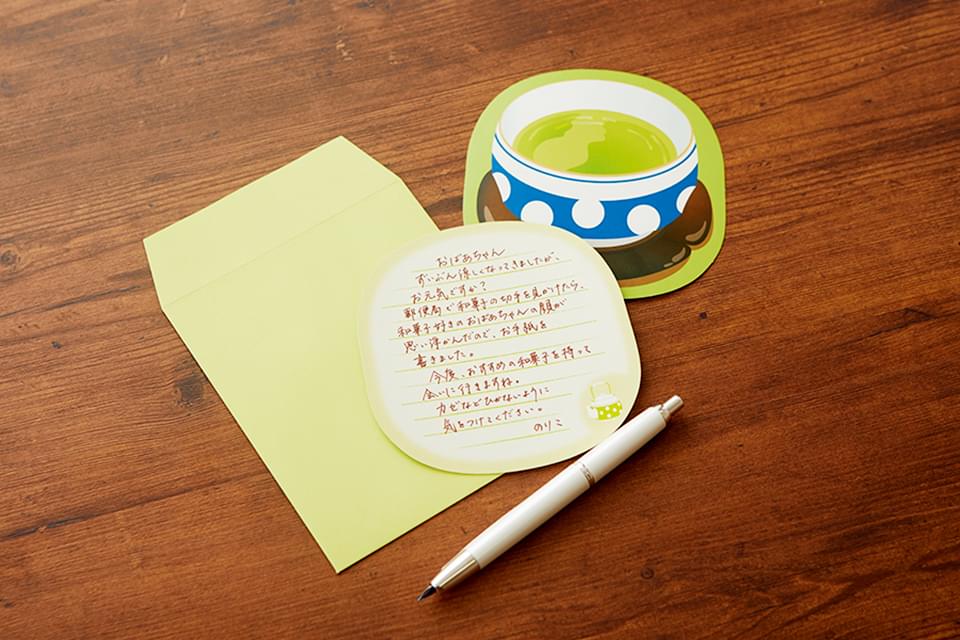 おばあちゃん
ずいぶん涼しくなってきましたが、
お元気ですか?
郵便局で和菓子の切手を見かけたら、
和菓子好きのおばあちゃんの顔が
思い浮かんだので、お手紙を
書きました。
今度、おすすめの和菓子を持って
会いに行きますね。
カゼなどひかないように
気をつけてください。
のりこ